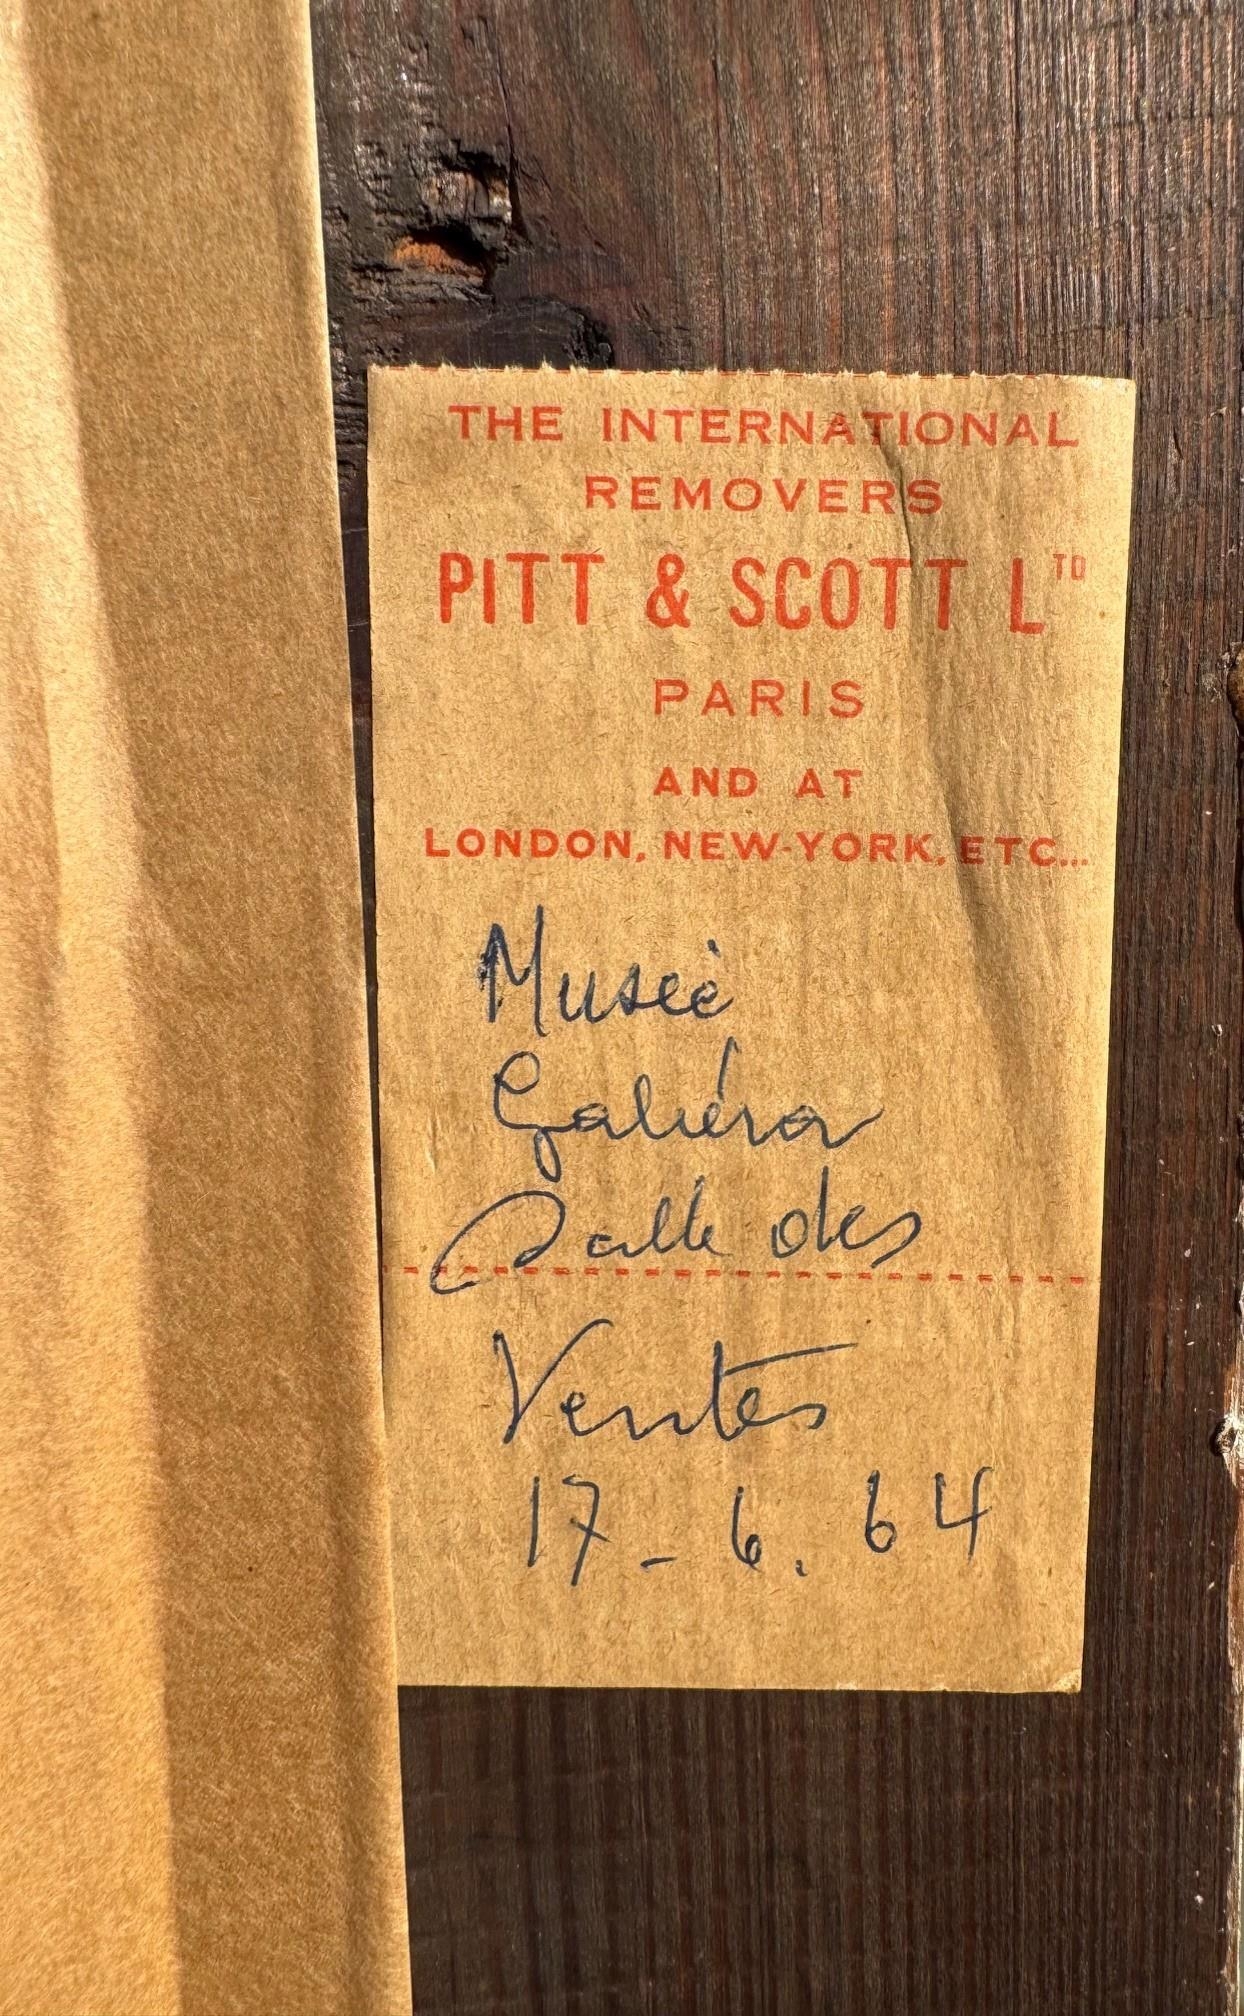 THE INTERNATIONAL
REMOVERS
PITT & SCOTT LTD
PARIS
AND AT
LONDON, NEW-YORK, ETC...
Museé
Galiéra
Salle des
Ventes
17 - 6 . 64